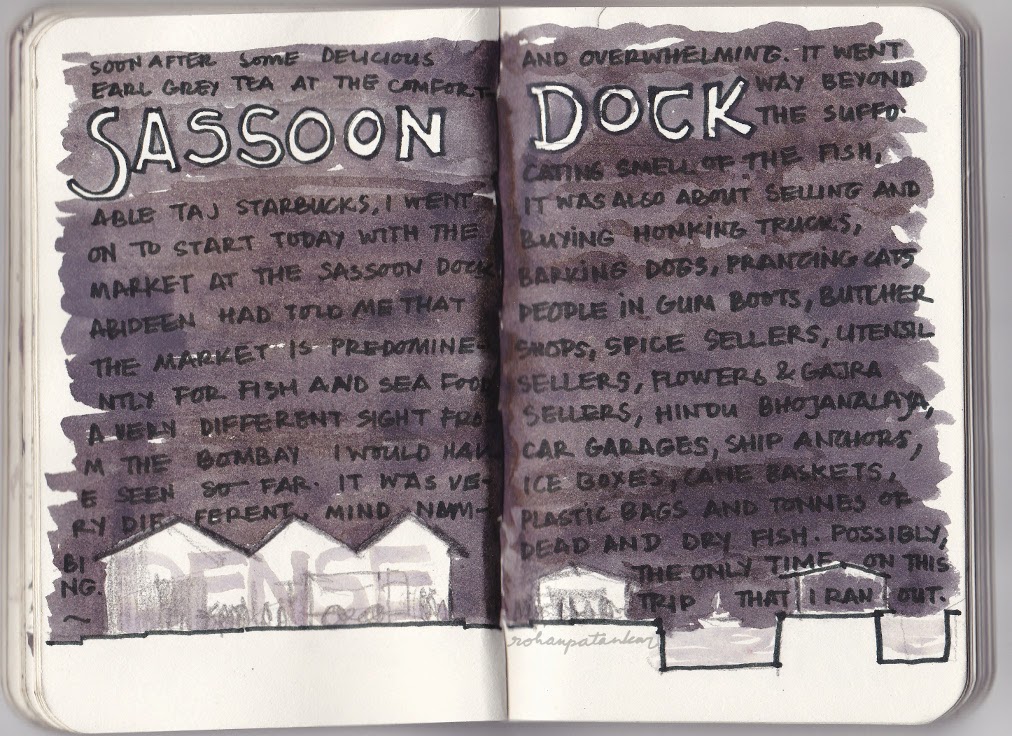 SOON AFTER SOME DELICIOUS
EARL GREY TEA AT THE COMFORT-
SASSOON
ABLE TAJ STARBUCKS, I WENT
ON TO START TODAY WITH THE
MARKET AT THE SASSOON DOCK
ABIDEEN HAD TOLD ME THAT
THE MARKET IS PREDOMINE-
NTLY FOR FISH AND SEA FOOD
A VERY DIFFERENT SIGHT FRO
M THE BOMBAY I WOULD HAV
E SEEN SO FAR. IT WAS VE-
RY DIF FERENT. MIND NUM-
BI
NG.
DENSE
AND OVERWHELMING. IT WENT
WAY BEYOND
DOCK
THE SUFFO-
CATING SMELL OF THE FISH,
IT WAS ALSO ABOUT SELLING AND
BUYING HONKING TRUCKS,
BARKING DOGS, PRANCING CATS
PEOPLE IN GUM BOOTS, BUTCHER
SHOPS, SPICE SELLERS, UTENSIL
SELLERS, FLOWERS & GAJRA
SELLERS, HINDU BHOJANALAYA,
CAR GARAGES, SHIP ANCHORS,
ICE BOXES, CANE BASKETS,
PLASTIC BAGS AND TONNES OF
DEAD AND DRY FISH. POSSIBLY,
THE ONLY TIME, ON THIS
TRIP THAT I RAN OUT.
rohanpatankar